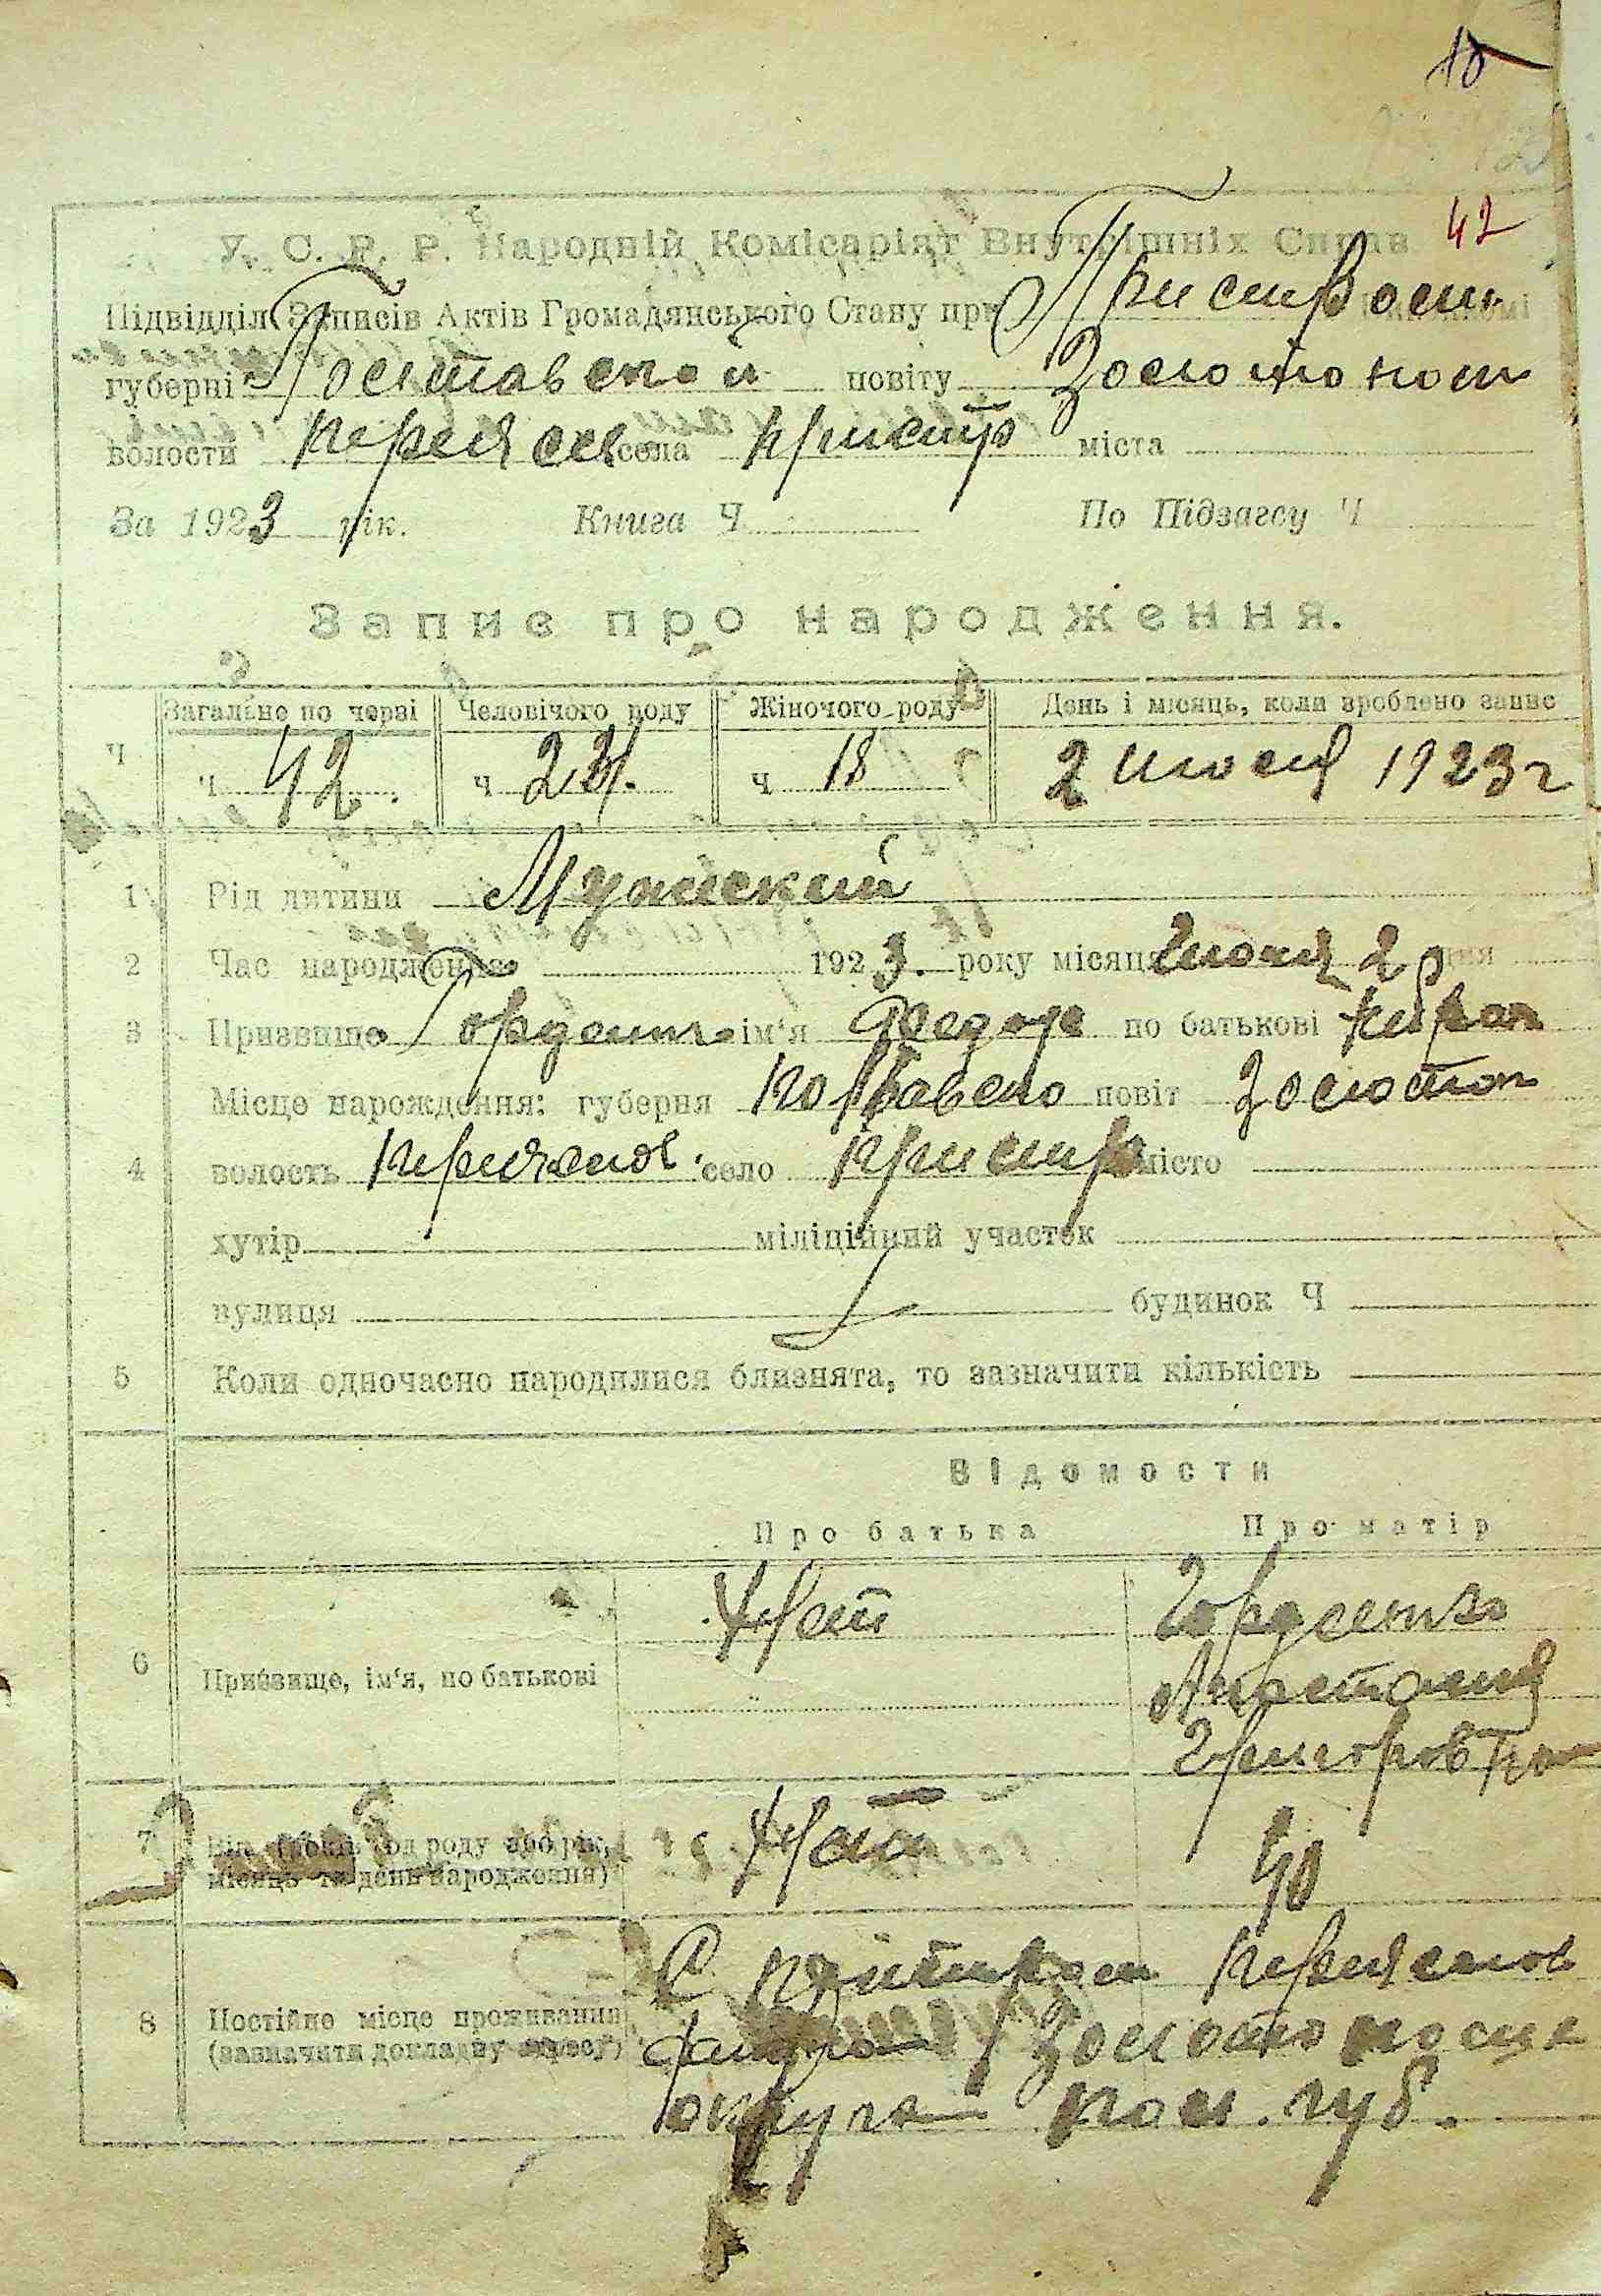 10
42
У. С. Р. Р. Народній Комісаріят Внутрішніх Справ
Підвідділ Записів Актів Громадянського Стану при Пристром
губерні Полтавской повіту Золотонош
волости Переясл села Пристр міста
За 1923 рік. Книга Ч По Підзагсу Ч
Запис про народження.
Загальне по черзі Человічого роду Жіночого роду День і місяць, коли зроблено запис
Ч Ч 42. Ч 24. Ч 18 2 Июля 1923 г
1 Рід дитини Мужеский
2 Час народження 1923. року місяця 2 дня
3 Призвище Гордиенко ім'я Федор по батькові
Місце нарождення: губерня Полтавско повіт Золотон
4 волость Переяслов. село Пристр місто
хутір міліційний участок
вулиця будинок Ч
5 Коли одночасно народилися близнята, то зазначити кількість
Відомости
Про батька Про матір
Нет Гордиенко
6 Призвище, ім'я, по батькові Анастасия
Григоровна
7 Вік (років од роду або рік, Нет 40
місяць та день народження)
8 Постійне місце проживання С Переяслов
(зазначити докладну адресу) Золотоноск
округа Пол. губ.